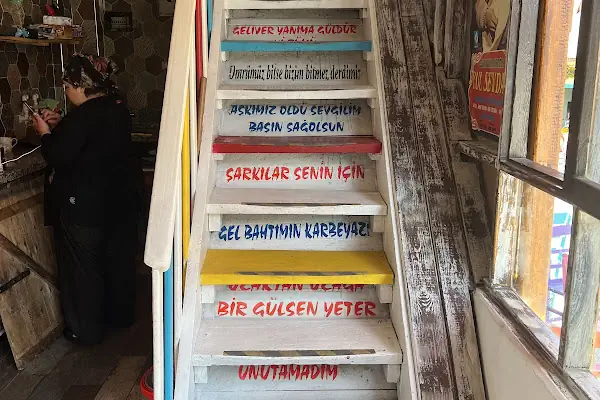 GELİVER YANIMA GÜLDÜR
Ömrümüz bitse bizim bitmez derdimiz
AŞKIMIZ ÖLDÜ SEVGİLİM
BAŞIN SAĞOLSUN
ŞARKILAR SENİN İÇİN
GEL BAHTIMIN KARBEYAZI
UZAKTAN UZAĞA
BİR GÜLSEN YETER
UNUTAMADIM